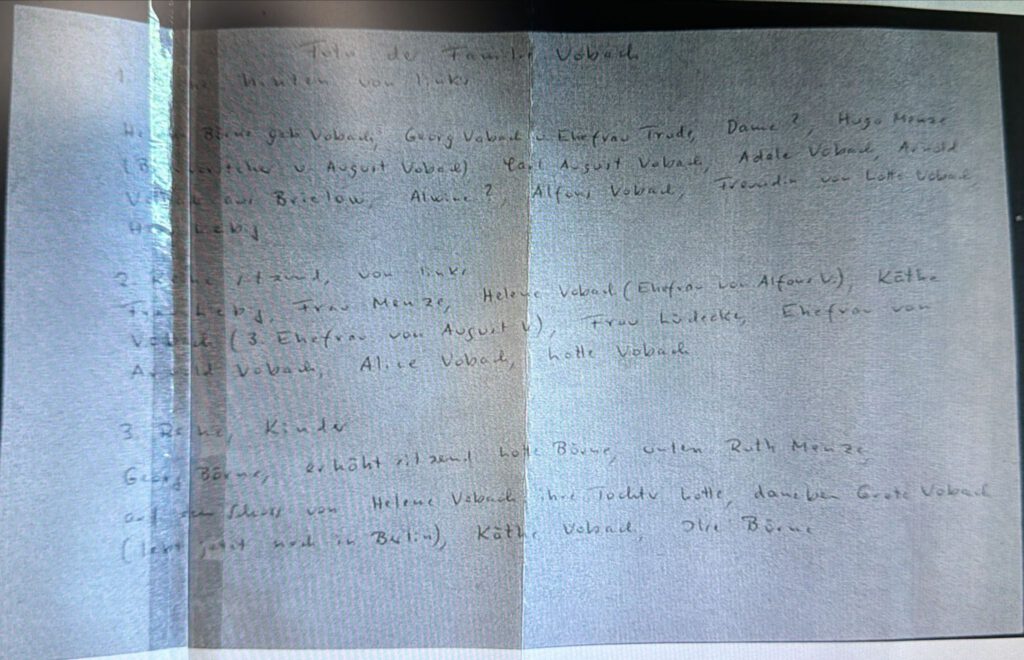 Foto der Familie Vobach
1. hinten von links
Börne geb Vobach, Georg Vobach u. Ehefrau Trude, Dame?, Hugo Menze
v. August Vobach) Carl August Vobach, Adele Vobach, Arnold
Vobach aus Brielow, Alwine?, Alfons Vobach, Freundin von Lotte Vobach,
Liebig
2. Reihe sitzend, von links
Frau Liebig, Frau Menze, Helene Vobach (Ehefrau von Alfons V.), Käthe
Vobach (3. Ehefrau von August V.), Frau Lüdecke, Ehefrau von
Arnold Vobach, Alice Vobach, Lotte Vobach
3. Reihe, Kinder
Georg Börne, erhöht sitzend Lotte Börne, unten Ruth Menze,
auf dem Schoss von Helene Vobach ihre Tochter Lotte, daneben Grete Vobach
(lebt jetzt noch in Berlin), Käthe Vobach, Ilse Börne